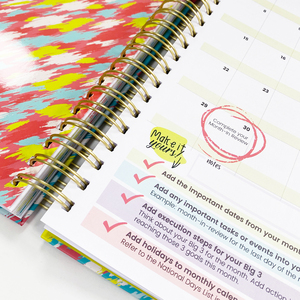 29
30
Complete your
Month-In Review
Make it
yours!
notes
Add the important dates from your mon
Add any important tasks or events into yo
Example: month-in-review for the last day of the
Add execution steps for your Big 3
Think about your Big 3 for the month. Add action
reaching those 3 goals this month.
Add holidays to monthly cale
Refer to the National Days List in